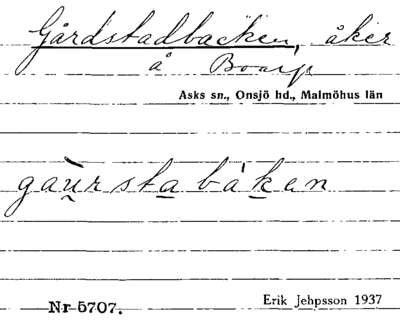 Gårdstadbacken, åker
å Boarp
Asks sn., Onsjö hd., Malmöhus län
gaù̯r sta̲ bák̲en
Nr 5707.
Erik Jehpsson 1937